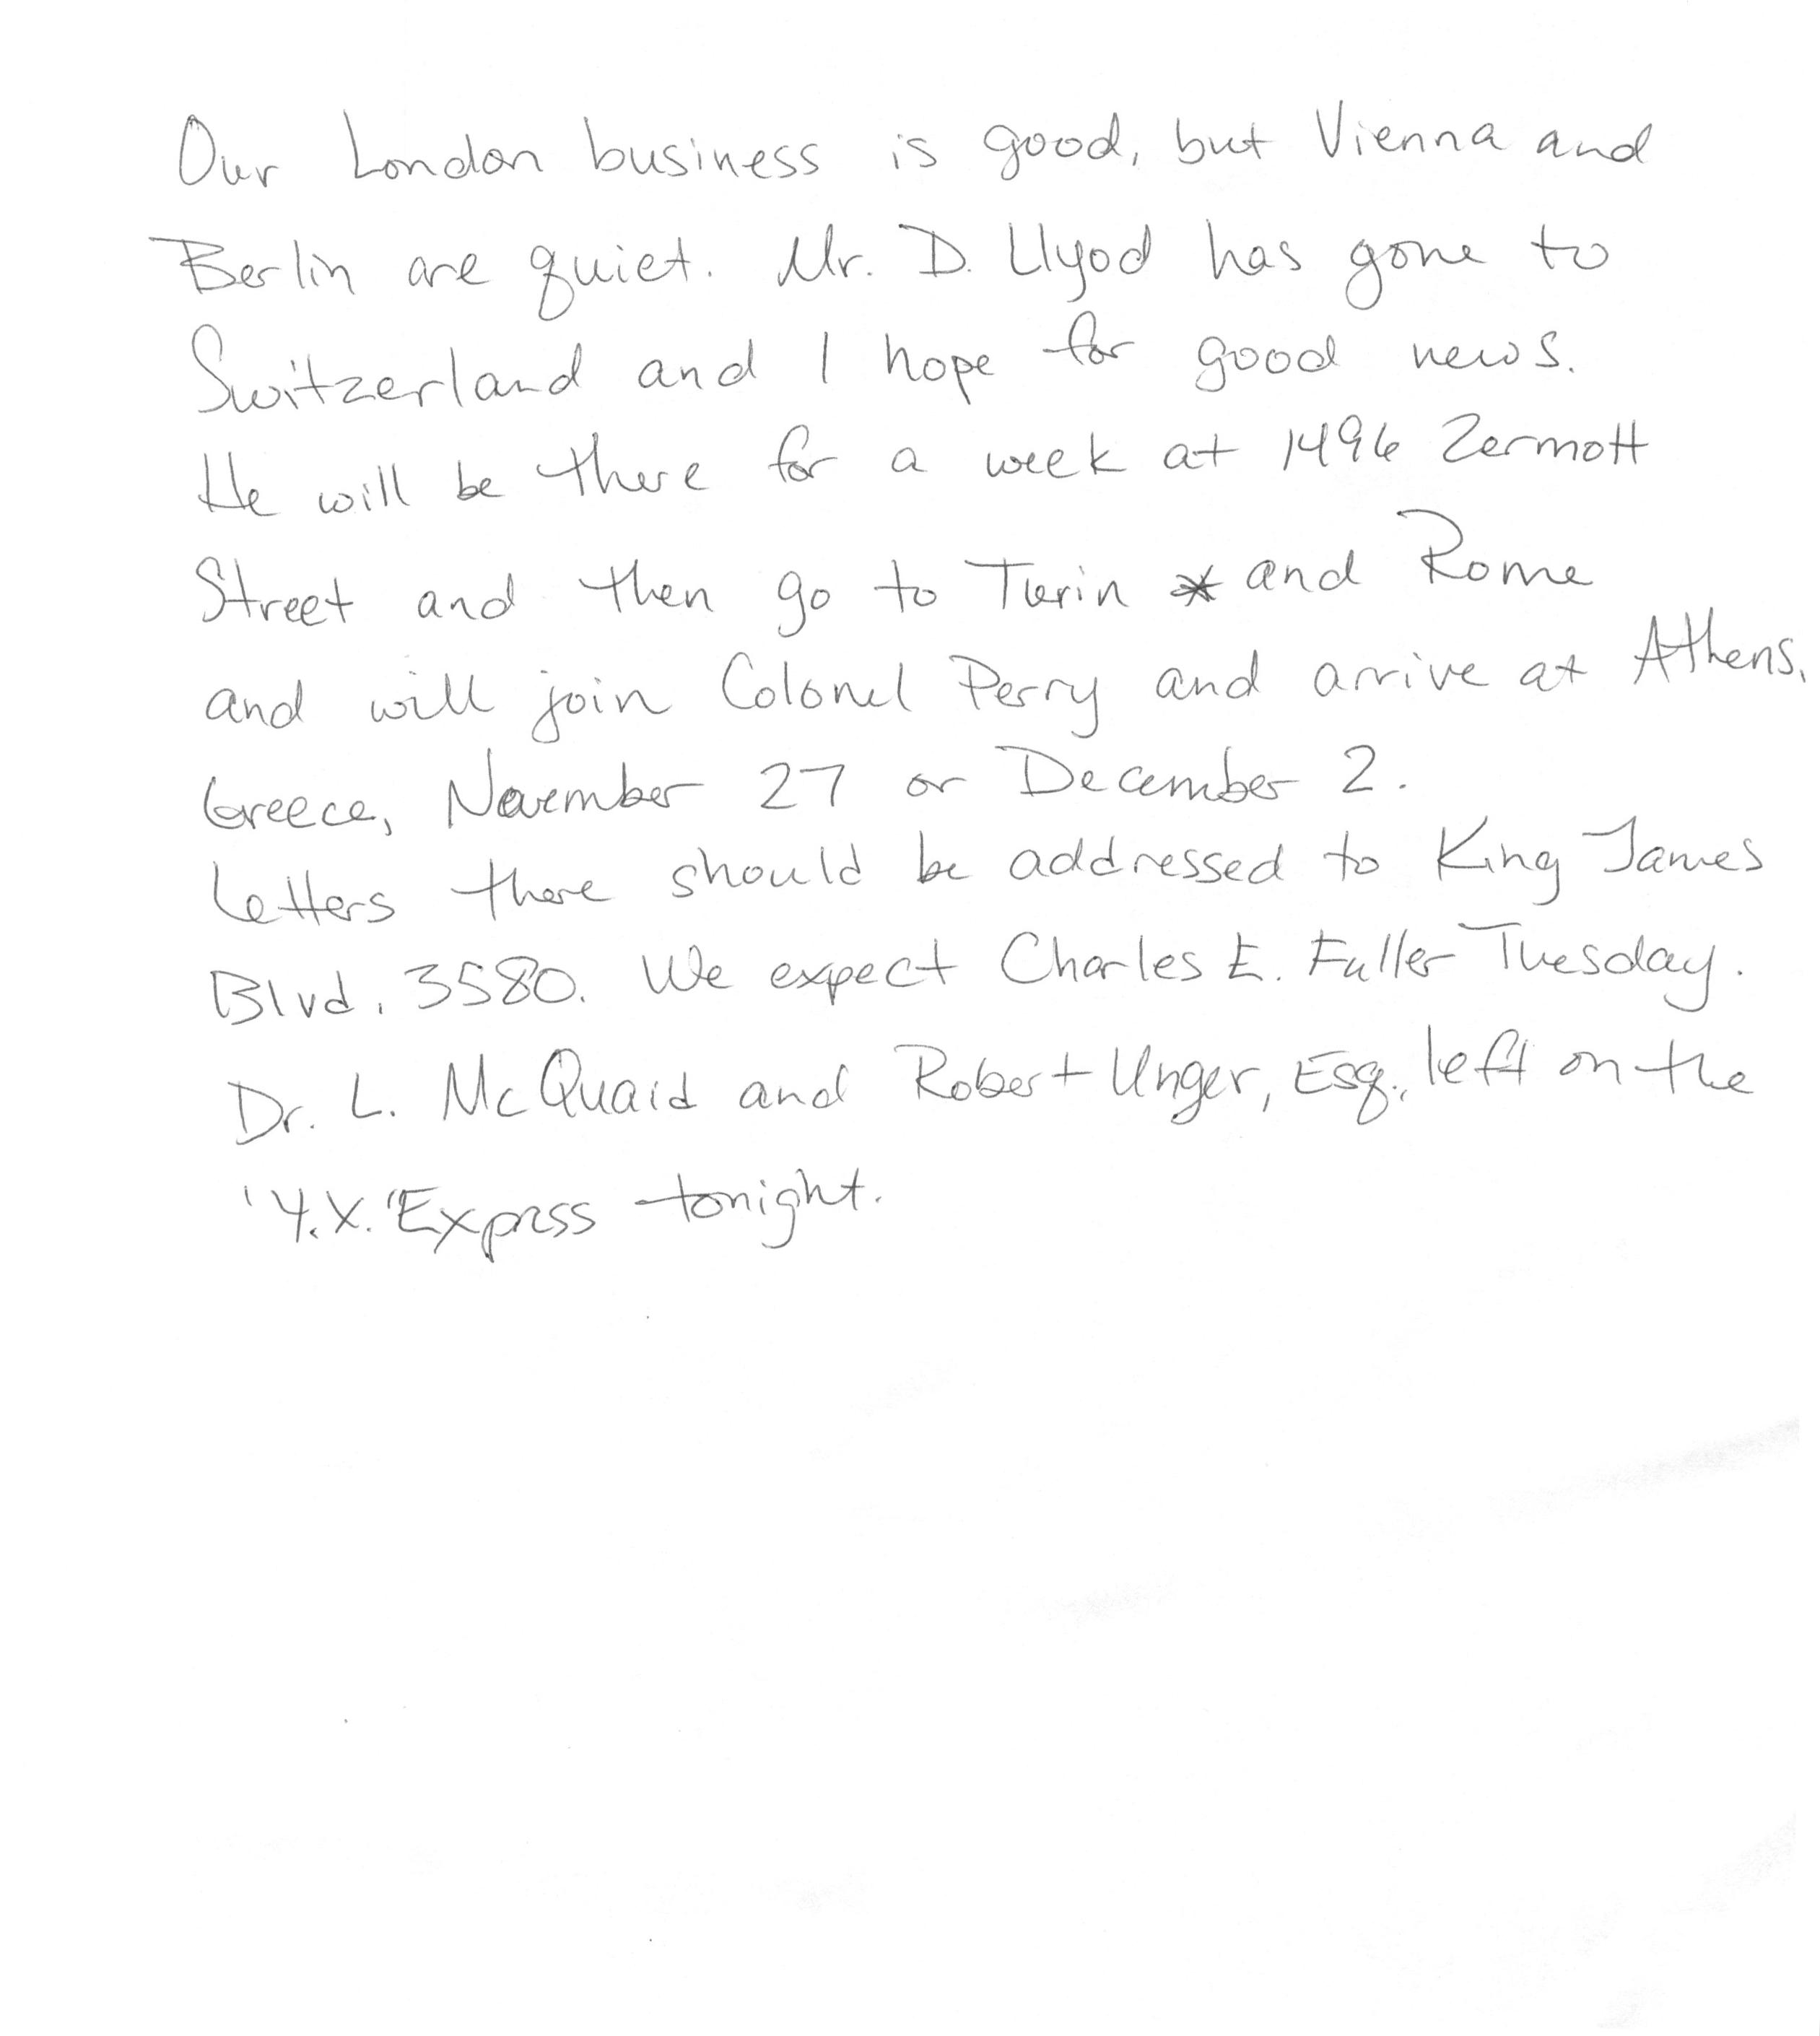 Our London business is good, but Vienna and
Berlin are quiet. Mr. D. Llyod has gone to
Switzerland and I hope for good news.
He will be there for a week at 1496 Zermott
Street and then go to Turin and Rome
and will join Colonel Perry and arrive at Athens,
Greece, November 27 or December 2.
Letters there should be addressed to King James
Blvd. 3580. We expect Charles E. Fuller Tuesday.
Dr. L. McQuaid and Robert Unger, Esq., left on the
'Y.X.' Express tonight.